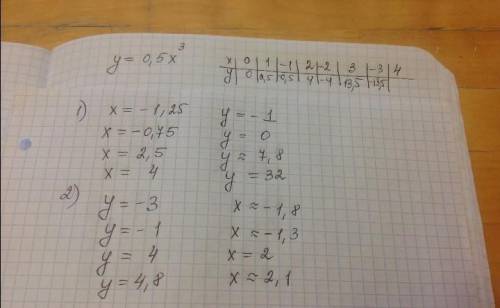 y = 0,5x³
x 0 1 -1 2 -2 3 -3 4
y 0 0,5 0,5 4 -4 13,5 13,5
1) x = -1,25 y = -1
x = -0,75 y = 0
x = 2,5 y ≈ 7,8
x = 4 y = 32
2) y = -3 x ≈ -1,8
y = -1 x ≈ -1,3
y = 4 x = 2
y = 4,8 x ≈ 2,1